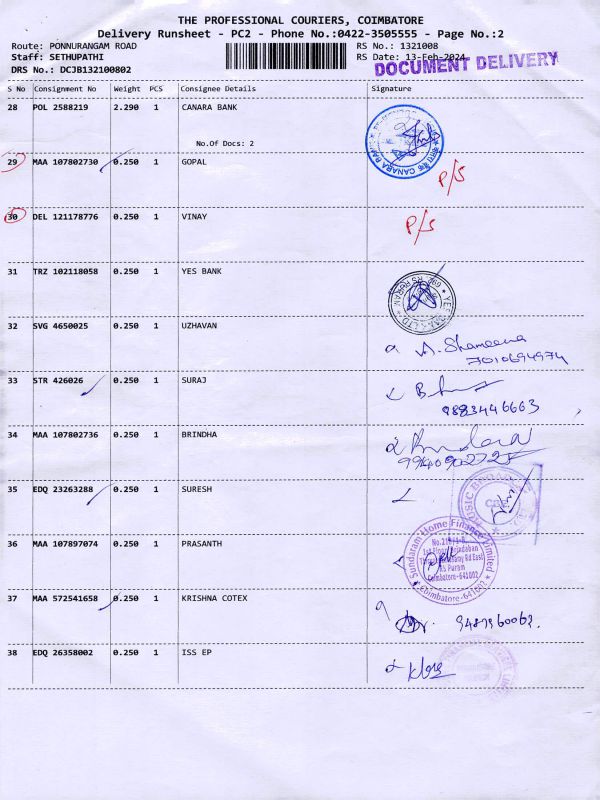 THE PROFESSIONAL COURIERS, COIMBATORE
Delivery Runsheet - PC2 - Phone No.:0422-3505555 - Page No.:2
Route: PONNURANGAM ROAD RS No.: 1321008
Staff: SETHUPATHI RS Date: 13-Feb-2024
DRS No.: DCJB132100802 DOCUMENT DELIVERY
S No Consignment No Weight PCS Consignee Details Signature
28 POL 2588219 2.290 1 CANARA BANK
No.Of Docs: 2
29 MAA 107802730 0.250 1 GOPAL P/S
30 DEL 121178776 0.250 1 VINAY P/S
31 TRZ 102118058 0.250 1 YES BANK
32 SVG 4650025 0.250 1 UZHAVAN A. Shameena
7010694974
33 STR 426026 0.250 1 SURAJ
9883446663
34 MAA 107802736 0.250 1 BRINDHA
35 EDQ 23263288 0.250 1 SURESH
36 MAA 107897074 0.250 1 PRASANTH Sundaram Home Finance Limited
RS Puram
Coimbatore-641002
Coimbatore-641002
37 MAA 572541658 0.250 1 KRISHNA COTEX
38 EDQ 26358002 0.250 1 ISS EP